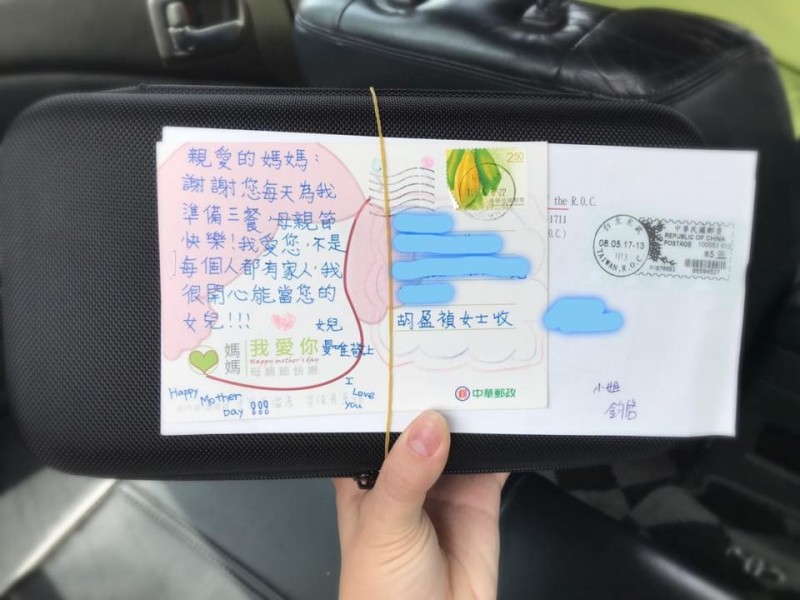 親愛的媽媽:
謝謝您每天為我
準備三餐,母親節
快樂!我愛您,不是
每個人都有家人,我
很開心能當您的
女兒!!!
女兒
曼唯敬上
媽媽 我愛你
Happy mother's day
母親節快樂
Happy
Mother
Day !!!
I
Love
you
2.50
胡盈禎女士收
中華郵政
the R.O.C.
-1711
.O.C.)
08.05.17-13
TAIWAN, R.O.C.
中華民國郵資
REPUBLIC OF CHINA
POSTAGE
小姐